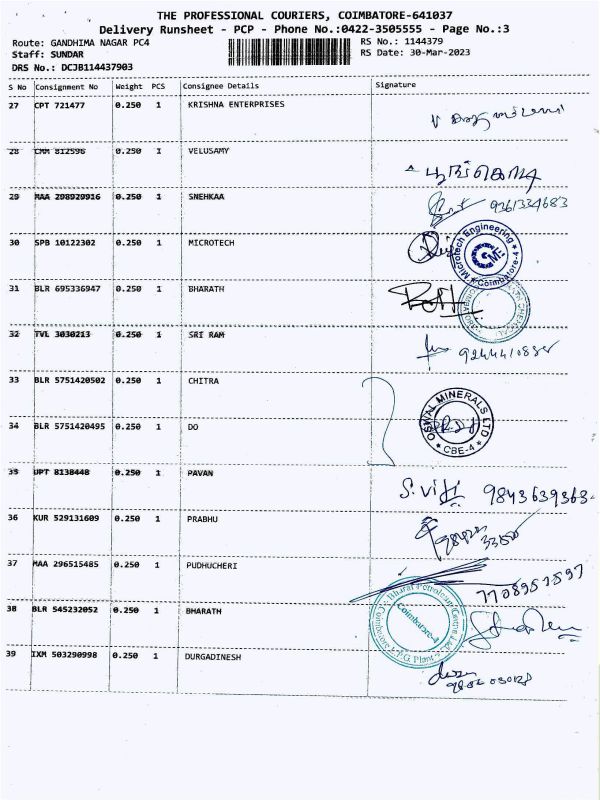 THE PROFESSIONAL COURIERS, COIMBATORE-641037
Delivery Runsheet - PCP - Phone No.:0422-3505555 - Page No.:3
Route: GANDHIMA NAGAR PC4
RS No.: 1144379
Staff: SUNDAR
RS Date: 30-Mar-2023
DRS No.: DCJB114437903
S No Consignment No Weight PCS Consignee Details Signature
27 CPT 721477 0.250 1 KRISHNA ENTERPRISES
28 CMM 812596 0.250 1 VELUSAMY
பூங்கொடி
29 MAA 298920916 0.250 1 SNEHKAA
9361334683
30 SPB 10122302 0.250 1 MICROTECH
Microtech Engineering
GME
Coimbatore-4
31 BLR 695336947 0.250 1 BHARATH
32 TVL 3030213 0.250 1 SRI RAM
33 BLR 5751420502 0.250 1 CHITRA
34 BLR 5751420495 0.250 1 DO
OSWAL MINERALS LTD
CBE-4
35 UPT 8138448 0.250 1 PAVAN
9843639363
36 KUR 529131609 0.250 1 PRABHU
37 MAA 296515485 0.250 1 PUDHUCHERI
7708957597
38 BLR 545232052 0.250 1 BHARATH
Bharat Petroleum
Coimbatore-4
39 IXM 503290998 0.250 1 DURGADINESH